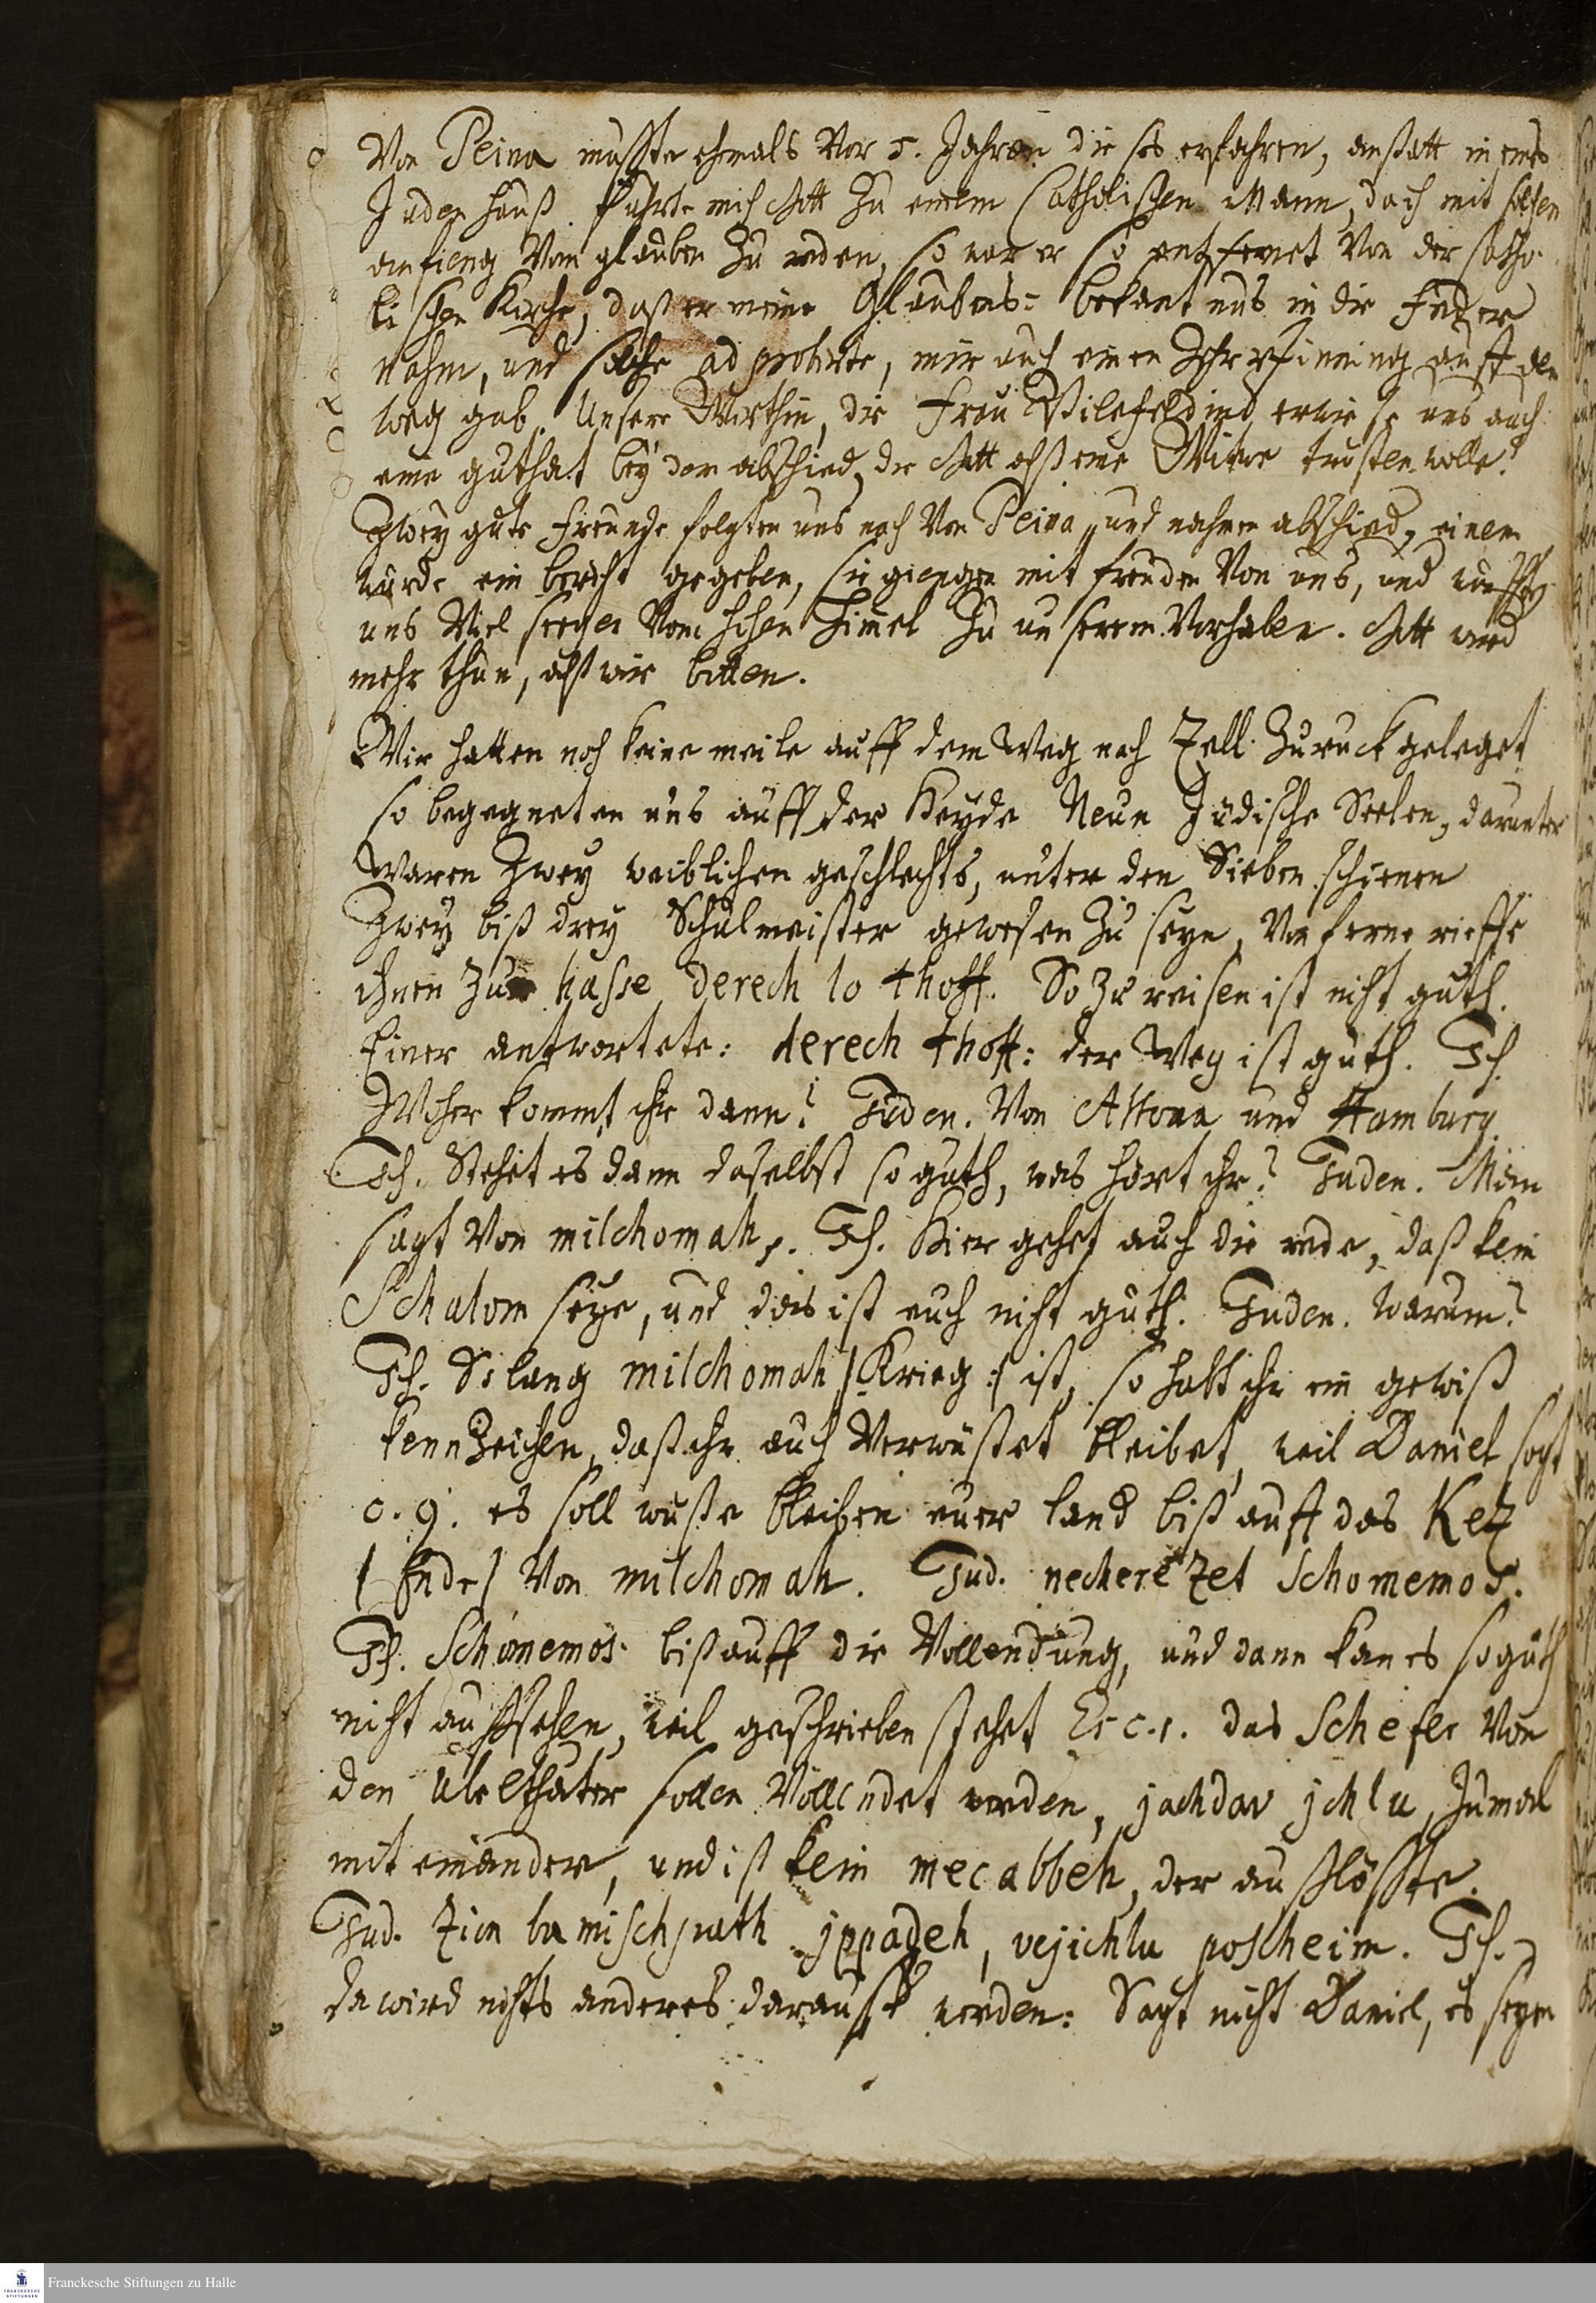 Von Peina muste ehmals vor 5. Jahren dieses erfahren, anstatt in eines
Juden hauß führte mich Gott zu einem Catholischen Mann, doch mit solchem
anfieng vom glauben zu reden, so war er so entfernet von der Catho-
lischen Kirche, daß er meine Glaubens-bekantnus in die Finger
nahm, und solche adprobirte, mir auch einen auff den
weg gab. Unsere Wirthin, die Frau erwiese uns auch
eine guthat bey dem abschied, die Gott alß eine Witwe trösten wolle!
Zwey gute Freunde folgten uns nach von Peina, und nahmen abschied, einem
wurde ein bericht gegeben, sie giengen mit freuden von uns, und wünschten
uns viel seegen vom hohen himel zu unserem vorhaben. Gott wird
mehr thun, alß wir bitten.
Wir hatten noch keine meile auff dem Weg nach Zell zuruckgeleget
so begegneten uns auff der Heyde Neun Jüdische Seelen, darunter
waren zwey weiblichen geschlechts, unter den Sieben schienen
zwey biß drey Schulmeister gewesen zu seyn, von ferne rieffe
ihnen zu hasse derech lo thoff. So zu reisen ist nicht guth.
Einer antwortete: derech thoff: der Weg ist guth. Ich
Woher kommt ihr dann? Juden. Von Altona und Hamburg.
Ich. Stehet es dann daselbst so guth, was hört ihr? Juden. Man
sagt von milchomah. Ich. Hier gehet auch die rede, daß kein
Schalom seye, und das ist auch nicht guth. Juden. Warum?
Ich. So lang milchomah /:Krieg:/ ist, so habt ihr ein gewiß
kennzeichen, daß ihr auch verwüstet bleibet, weil Daniel sagt
c. 9. es soll wüste bleiben euer land biß auff das Ketz
/Ende/ von milchomah. Jud. necherezet Schomemos.
Ich. Schomemos. biß auff die Vollendung, und dann kan es so guth
nicht außsehen, weil geschrieben stehet Es. c. 1. das Schefer von
den übelthäter sollen vollendet werden, jachdav jchlu, zumal
mit einander, und ist kein mecabbeh, der außlöschte.
Jud. Zion bamischpath jppadeh, vejichlu poscheim. Ich.
da wird nichts anderes darauß werden: Sagt nicht Daniel, es seyen
Franckesche Stiftungen zu Halle